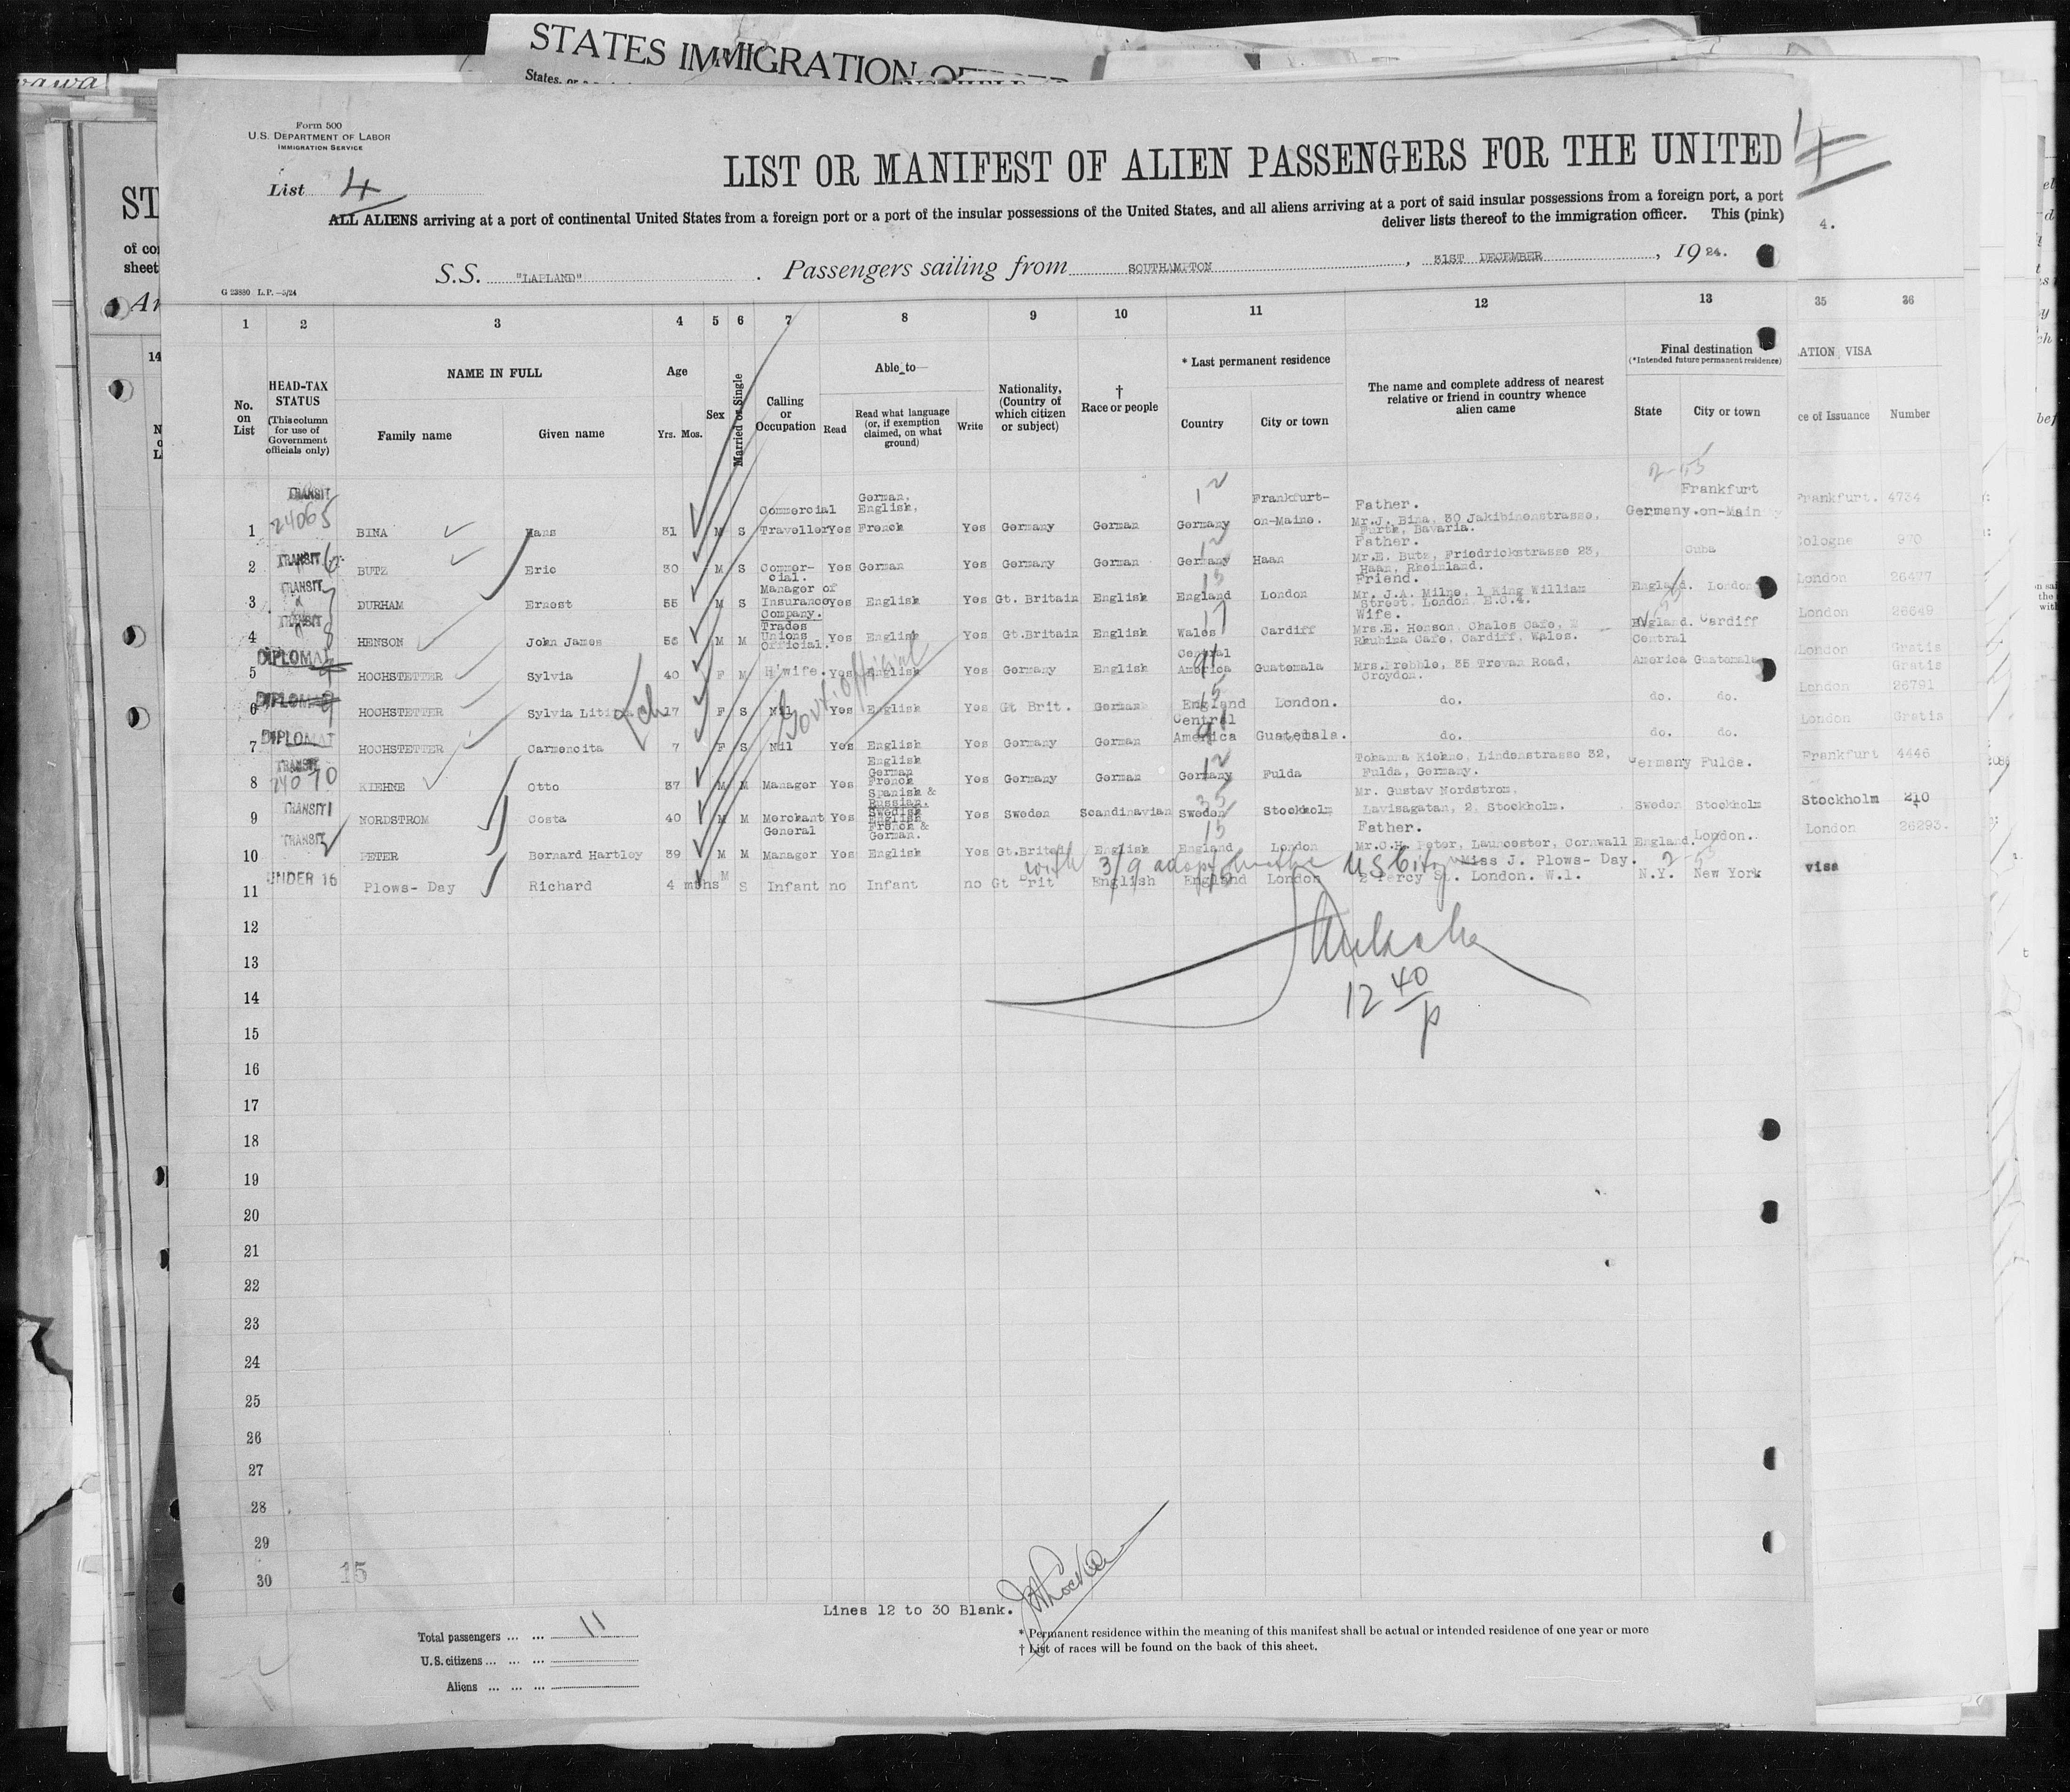 STATES IMMIGRATION
States, or a
Form 500
U.S. DEPARTMENT OF LABOR
IMMIGRATION SERVICE
List 4
LIST OR MANIFEST OF ALIEN PASSENGERS FOR THE UNITED
4
ALL ALIENS arriving at a port of continental United States from a foreign port or a port of the insular possessions of the United States, and all aliens arriving at a port of said insular possessions from a foreign port, a port
deliver lists thereof to the immigration officer. This (pink)
4.
S.S. "LAPLAND". Passengers sailing from SOUTHAMPTON, 31ST DECEMBER, 1924.
G 23880 L.P.—5/24
1 2 3 4 5 6 7 8 9 10 11 12 13 35 36
No. on List
HEAD-TAX STATUS
(This column for use of Government officials only)
NAME IN FULL
Family name
Given name
Age
Yrs. Mos.
Sex
Married or Single
Calling or Occupation
Able to—
Read
Read what language (or, if exemption claimed, on what ground)
Write
Nationality, (Country of which citizen or subject)
† Race or people
* Last permanent residence
Country
City or town
The name and complete address of nearest relative or friend in country whence alien came
Final destination
(*Intended future permanent residence)
State
City or town
ATION VISA
ce of Issuance
Number
1 TRANSIT 24065 BINA Hans 31 M S Commercial Traveller Yes German, English, French Yes Germany German Germany Frankfurt-on-Maine. Father. Mr.J. Bina, 30 Jakibinenstrasse, Furth, Bavaria. Germany. Frankfurt on-Main Frankfurt. 4734
2 TRANSIT 6 BUTZ Eric 30 M S Commercial. Yes German Yes Germany German Germany Haan Father. Mr.E. Butz, Friedrickstrasse 23, Haan, Rheinland. Cuba Cologne 970
3 TRANSIT 7 DURHAM Ernest 55 M S Manager of Insurance Company. Yes English Yes Gt. Britain English England London Friend. Mr. J.A. Milne, 1 King William Street, London. E.C.4. England. London London 26477
4 TRANSIT 8 HENSON John James 56 M M Trades Unions Official. Yes English Yes Gt.Britain English Wales Cardiff Wife. Mrs.E. Henson, Chales Cafe, Rhubina Cafe, Cardiff, Wales. England. Cardiff London 26649
5 DIPLOMAT HOCHSTETTER Sylvia 40 F M H'wife. Yes English Yes Germany English Central America Guatemala Mrs.Prebble, 35 Trevan Road, Croydon. Central America Guatemala London Gratis
6 DIPLOMAT HOCHSTETTER Sylvia 17 F S Nil Yes English Yes Gt Brit. German England London. do. do. do. London 26791
Gratis
7 DIPLOMAT HOCHSTETTER Carmencita 7 F S Nil Yes English Yes Germany German Central America Guatemala. do. do. do. London Gratis
Govt. official
8 TRANSIT 24070 KIEHNE Otto 37 M M Manager Yes English German French Spanish & Russian. Yes Germany German Germany Fulda Tohanna Kiehne, Lindenstrasse 32, Fulda, Germany. Germany Fulde. Frankfurt 4446
9 TRANSIT 1 NORDSTROM Costa 40 M M Merchant Yes Swedish English French & German. Yes Sweden Scandinavian Sweden Stockholm Mr. Gustav Nordstrom, Lavisagatan, 2, Stockholm. Sweden Stockholm Stockholm 210
10 TRANSIT PETER Bernard Hartley 39 M M General Manager Yes English Yes Gt.Britain English England London Father. Mr.O.H. Peter, Launcester, Cornwall England. London. London 26293.
with 3/9 adopt mother US Citz
11 UNDER 16 Plows- Day Richard 4 mths M S Infant no Infant no Gt Brit English England London Miss J. Plows- Day. 2 Percy St. London. W.1. N.Y. New York visa
12
13
14
12 40 p
15
16
17
18
19
20
21
22
23
24
25
26
27
28
29
30
15
Lines 12 to 30 Blank.
Total passengers ... ... 11
U.S. citizens ... ... ...
Aliens ... ... ...
* Permanent residence within the meaning of this manifest shall be actual or intended residence of one year or more
† List of races will be found on the back of this sheet.